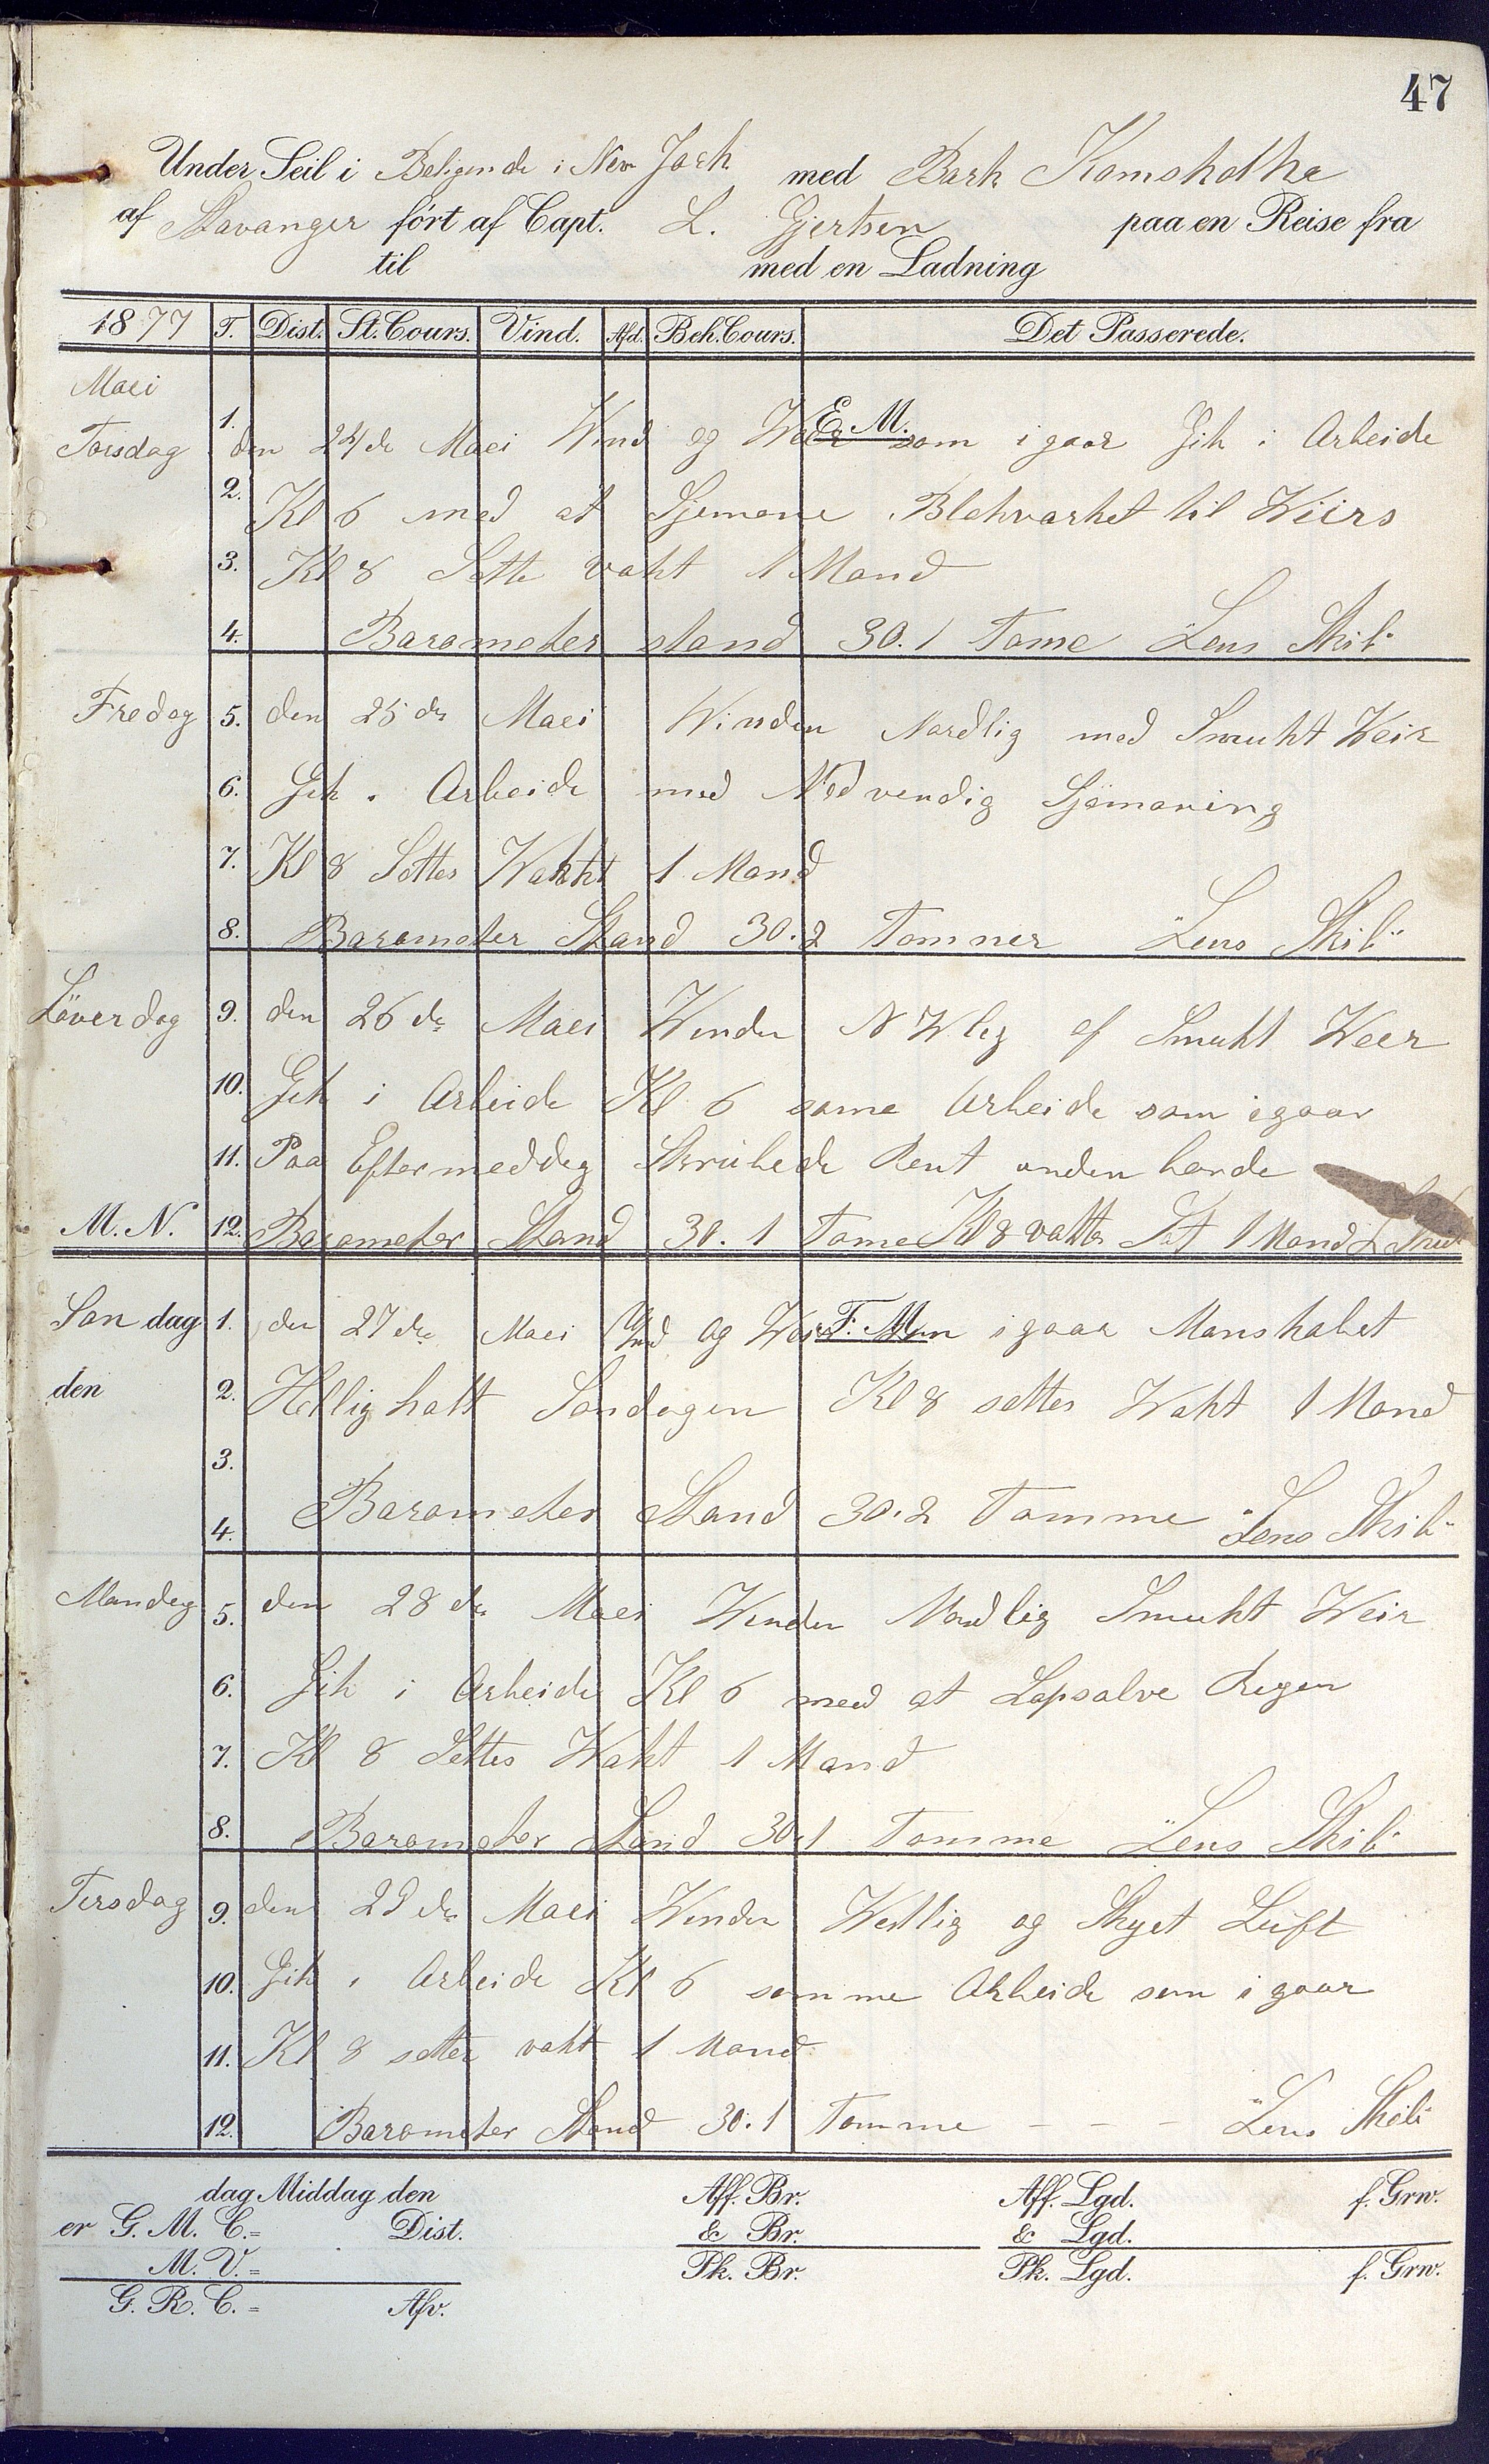 47
Under Seil i Beligende i New Jork med Bark Kamskatka
af Stavanger ført af Capt. L. Gjertsen paa en Reise fra
til med en Ladning
1877 T. Dist. St. Cours. Vind. Afd. Beh. Cours. Det Passerede.
Maei
E. M.
Torsdag 1. den 24de Maei Wind og Weer som igaar Gik i Arbeide
2. Kl 6 med at Sjemane Blokvarket til Wiirs
3. Kl 8 Sette vakt 1 Mand
4. Barometer stand 30.1 Tome Lens Skib
Fredag 5. den 25de Maei Winden Nordlig med Smukt Weir
6. Gik i Arbeide med Nødvendig Sjømaning
7. Kl 8 Settes Wakt 1 Mand
8. Barometer Stand 30.2 Tommer Lens Skib
Løverdag 9. den 26de Maei Winden N Wlig af Smukt Weer
10. Gik i Arbeide Kl 6 same Arbeide som igaar
11. Paa Eftermeddag Skrubede Rent unden borde
M. N. 12. Barometer Stand 30.1 Tome Kl 8 vakta Set 1 Mand L Skib
F. M.
Søndag 1. den 27de Maei Wind og Weir som igaar Manskabet
den 2. Hellig halt Søndagen Kl 8 settes Wakt 1 Mand
3.
4. Barometer Stand 30.2 Tomme Lens Skib
Mandag 5. den 28de Maei Winden Nordlig Smukt Weir
6. Gik i Arbeide Kl 6 med at Lapsalve Regen
7. Kl 8 Settes Wakt 1 Mand
8. Barometer Stand 30.1 Tomme Lens Skib
Tirsdag 9. den 29de Maei Winden Westlig og Skyet Luft
10. Gik i Arbeide Kl 6 somme Arbeide som igaar
11. Kl 8 settes vakt 1 Mand
12. Barometer Stand 30.1 Tomme - - - Lens Skib
dag Middag den Aff. Br. Aff. Lgd. f. Grw.
er G. M. C.= Dist. & Br. & Lgd.
M. V.= Pk. Br. Pk. Lgd. f. Grw.
G. R. C.= Afv.